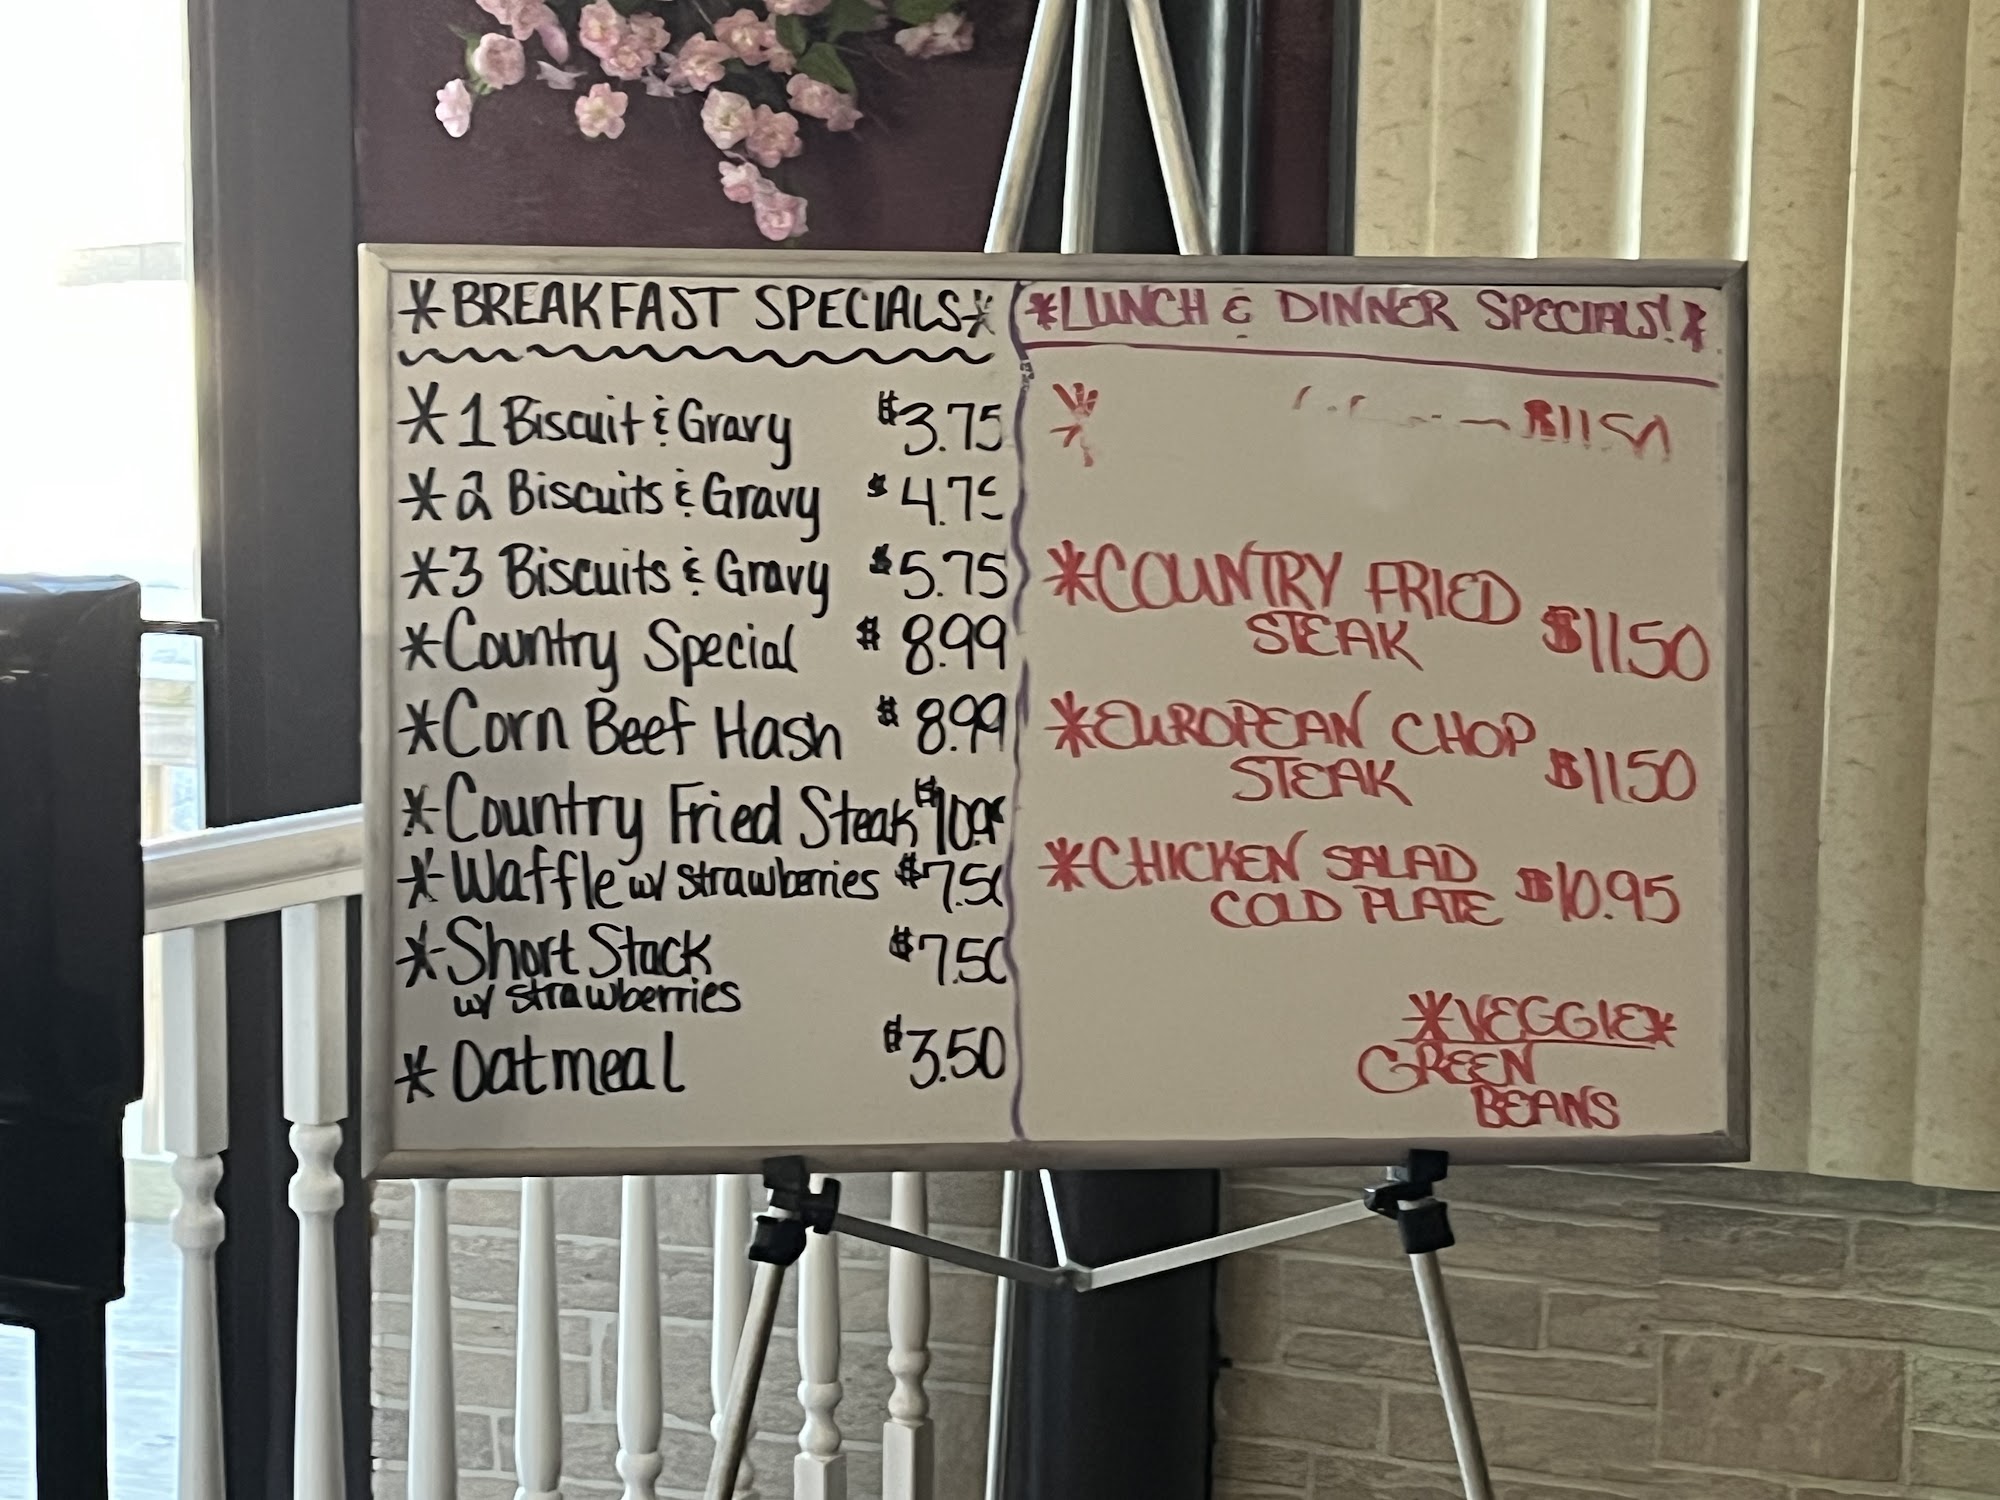 *BREAKFAST SPECIALS*
*1 Biscuit & Gravy $3.75
*2 Biscuits & Gravy $4.75
*3 Biscuits & Gravy $5.75
*Country Special $8.99
*Corn Beef Hash $8.99
*Country Fried Steak
*Waffle w/ strawberries $7.50
*Short Stack $7.50
w/ strawberries
*Oatmeal $3.50
*LUNCH & DINNER SPECIALS!*
*COUNTRY FRIED
STEAK $1150
*EUROPEAN CHOP
STEAK $1150
*CHICKEN SALAD
COLD PLATE $10.95
*VEGGIE*
GREEN
BEANS